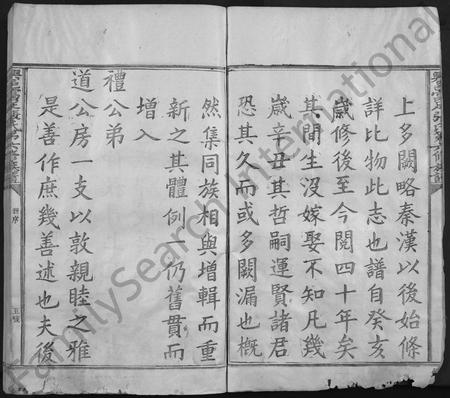 上多闕略秦漢以後始條
詳比物此志也譜自癸亥
歲修後至今閱四十年矣
其間生沒嫁娶不知凡幾
歲辛丑其哲嗣運賢諸君
恐其久而或多闕漏也槪
然集同族相與增輯而重
新之其體例一仍舊貫而
增入
禮公弟
道公房一支以敦親睦之雅
是善作庶幾善述也夫後
FamilySearch International